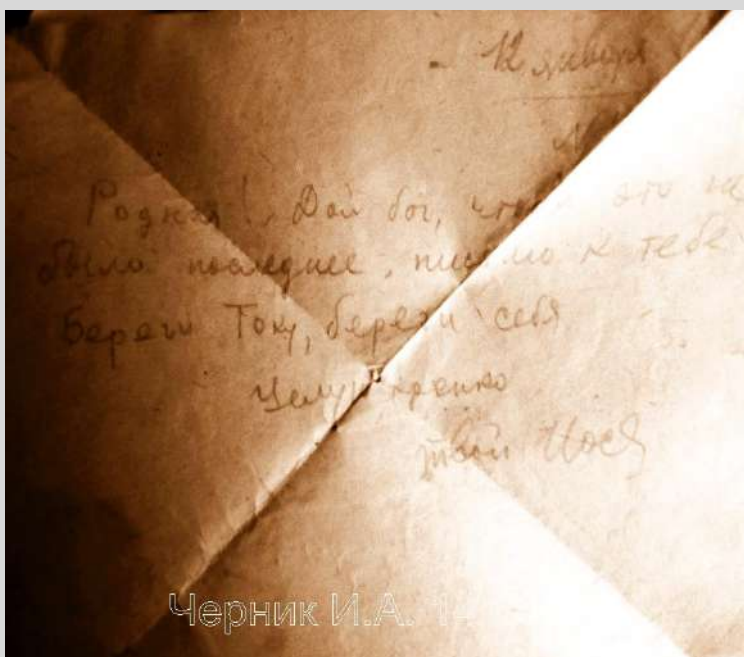 12 января
Родная! Дай бог, чтоб это не
было последнее, письмо к тебе
Береги Току, береги себя
Целую крепко
твой Иося
Черник И.А. 14